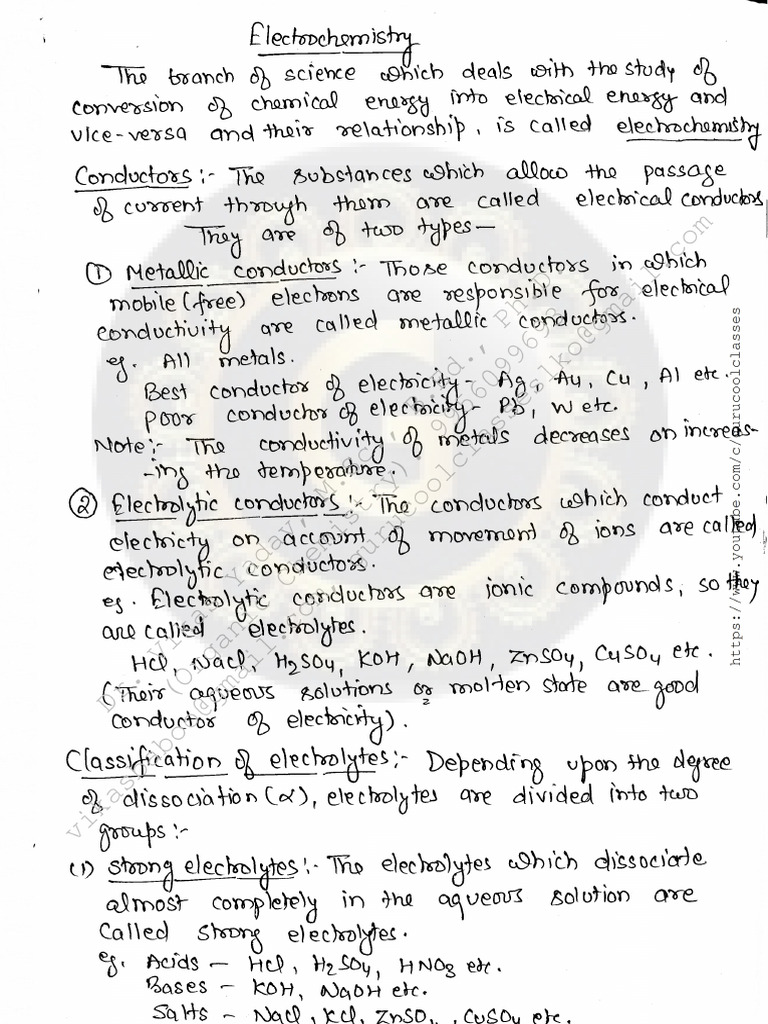 Electrochemistry
The branch of science which deals with the study of
conversion of chemical energy into electrical energy and
vice-versa and their relationship, is called electrochemistry
Conductors :- The substances which allow the passage
of current through them are called electrical conductors
They are of two types—
① Metallic conductors :- Those conductors in which
mobile (free) electrons are responsible for electrical
conductivity are called metallic conductors.
eg. All metals.
Best conductor of electricity - Ag, Au, Cu, Al etc.
Poor conductor of electricity - Pb, W etc.
Note :- The conductivity of metals decreases on increas-
-ing the temperature.
② Electrolytic conductors :- The conductors which conduct
electricty on account of movement of ions are called
electrolytic conductors.
eg. Electrolytic conductors are ionic compounds, so they
are called electrolytes.
HCl, NaCl, H₂SO₄, KOH, NaOH, ZnSO₄, CuSO₄ etc.
(Their aqueous solutions or molten state are good
conductor of electricity).
Classification of electrolytes :- Depending upon the degree
of dissociation (α), electrolytes are divided into two
groups :-
(1) Strong electrolytes :- The electrolytes which dissociate
almost completely in the aqueous solution are
called strong electrolytes.
eg. Acids - HCl, H₂SO₄, HNO₃ etc.
Bases - KOH, NaOH etc.
Salts - NaCl, KCl, ZnSO₄, CuSO₄ etc.
https://www.youtube.com/c/gurucoolclasses